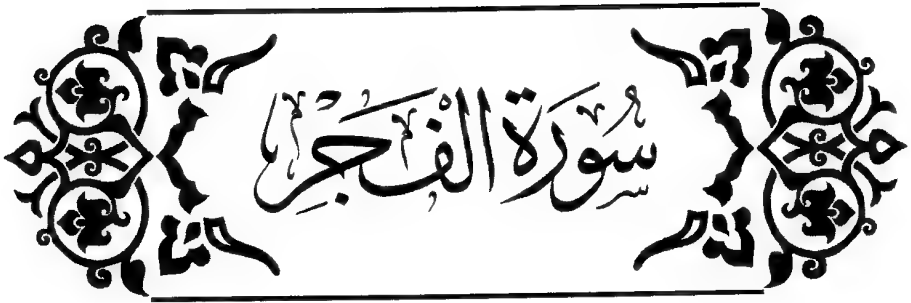 سُورَة الفَجْرِ